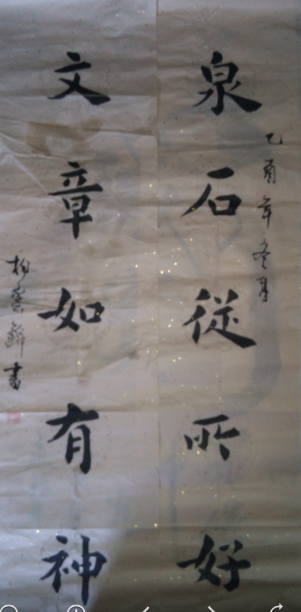 泉石從所好
乙酉年冬月
文章如有神
書